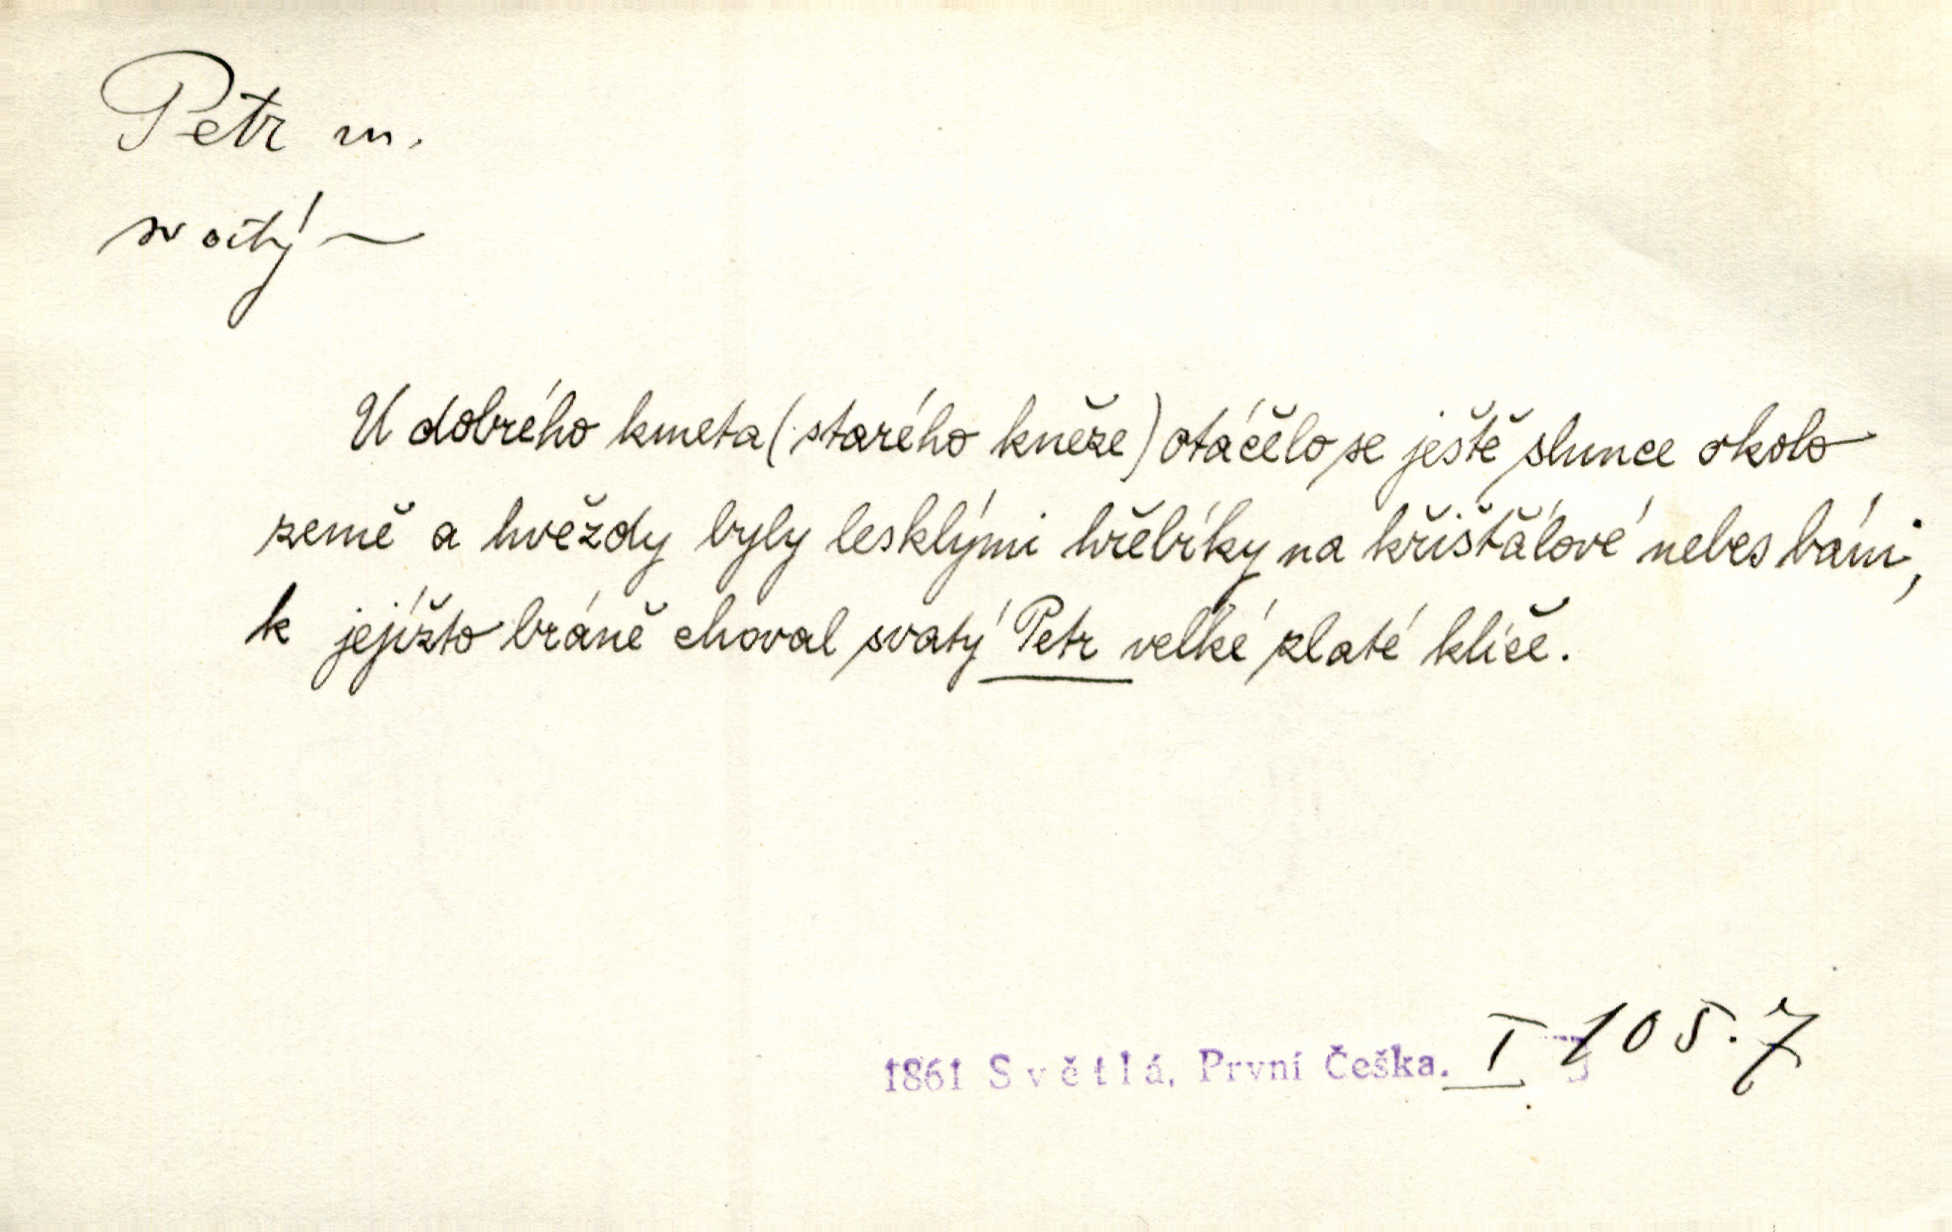 Petr m.
svatý —
U dobrého kmeta (starého kněze) otáčelo se ještě slunce okolo
země a hvězdy byly lesklými hřebíky na křišťálové nebes báni,
k jejížto bráně choval svatý Petr velké zlaté klíče.
1861 Světlá, První Češka. I 105.7